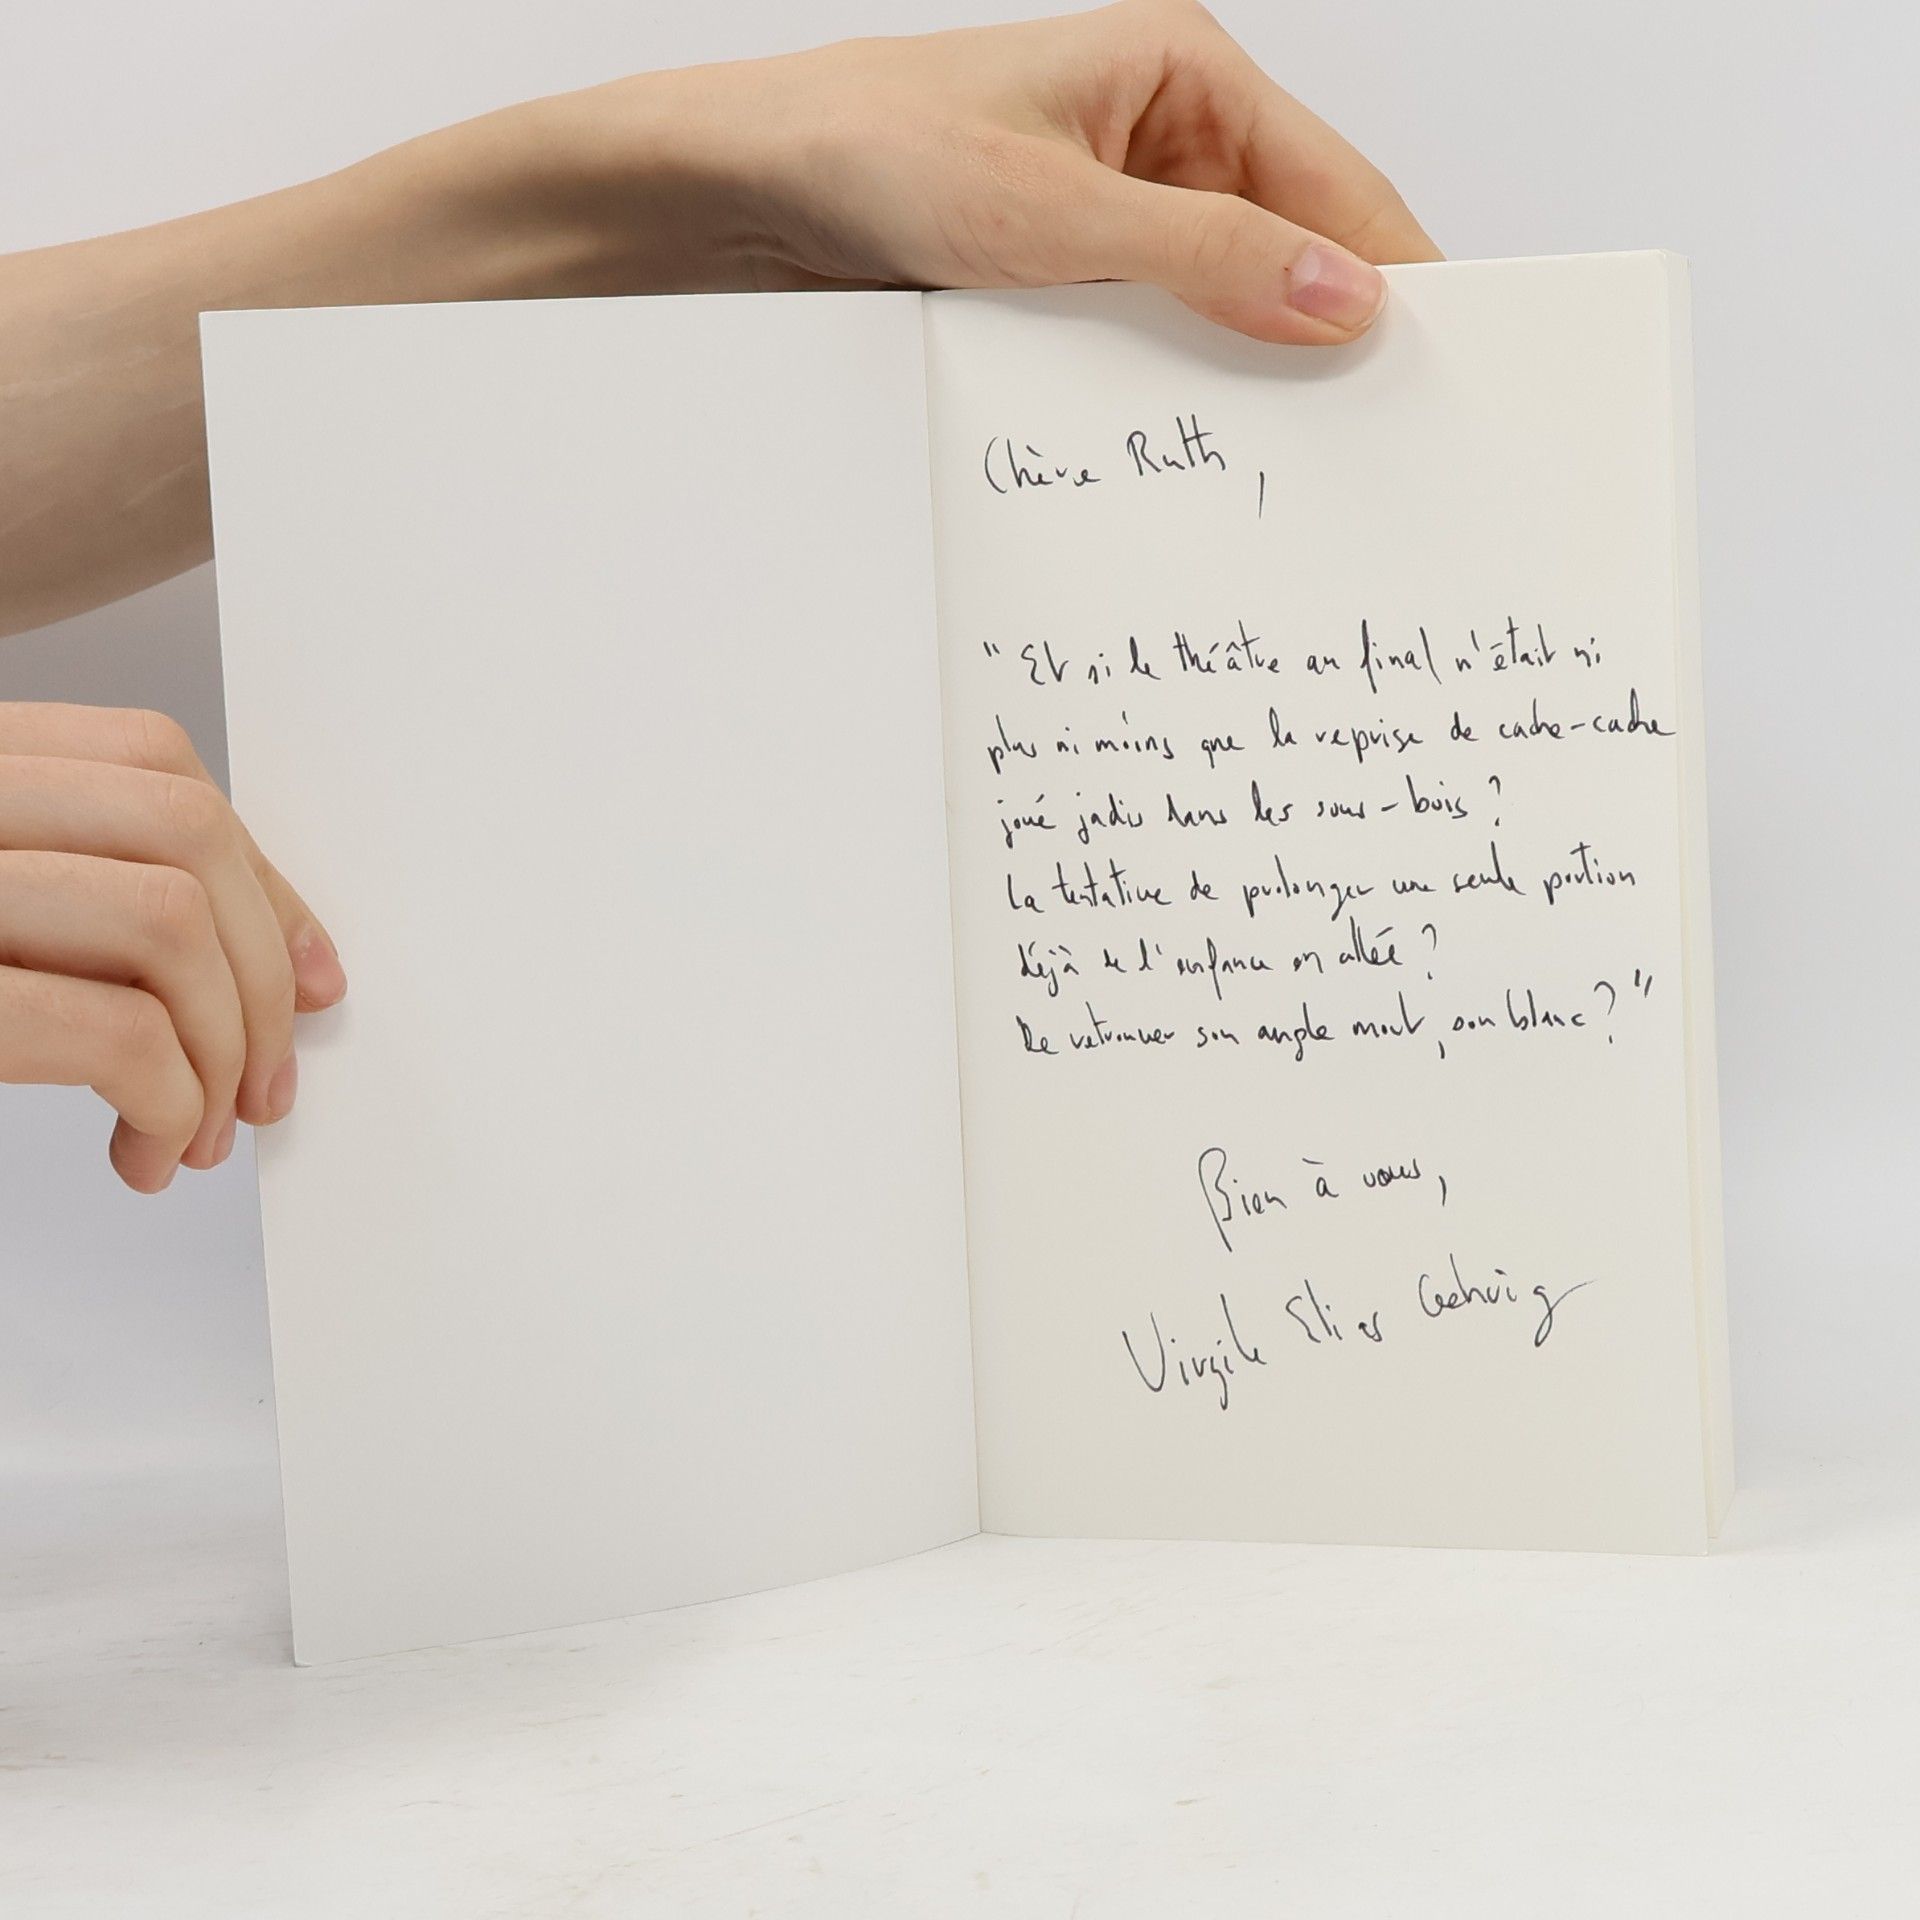 Chère Ruth,
" Et si le théâtre au final n'était ni
plus ni moins que la reprise de cache-cache
joué jadis dans les sous-bois ?
La tentative de prolonger une seule portion
déjà de l'enfance en allée ?
De retrouver son angle mort, son blanc ? "
Bien à vous,
Virgile Elias Gehrig